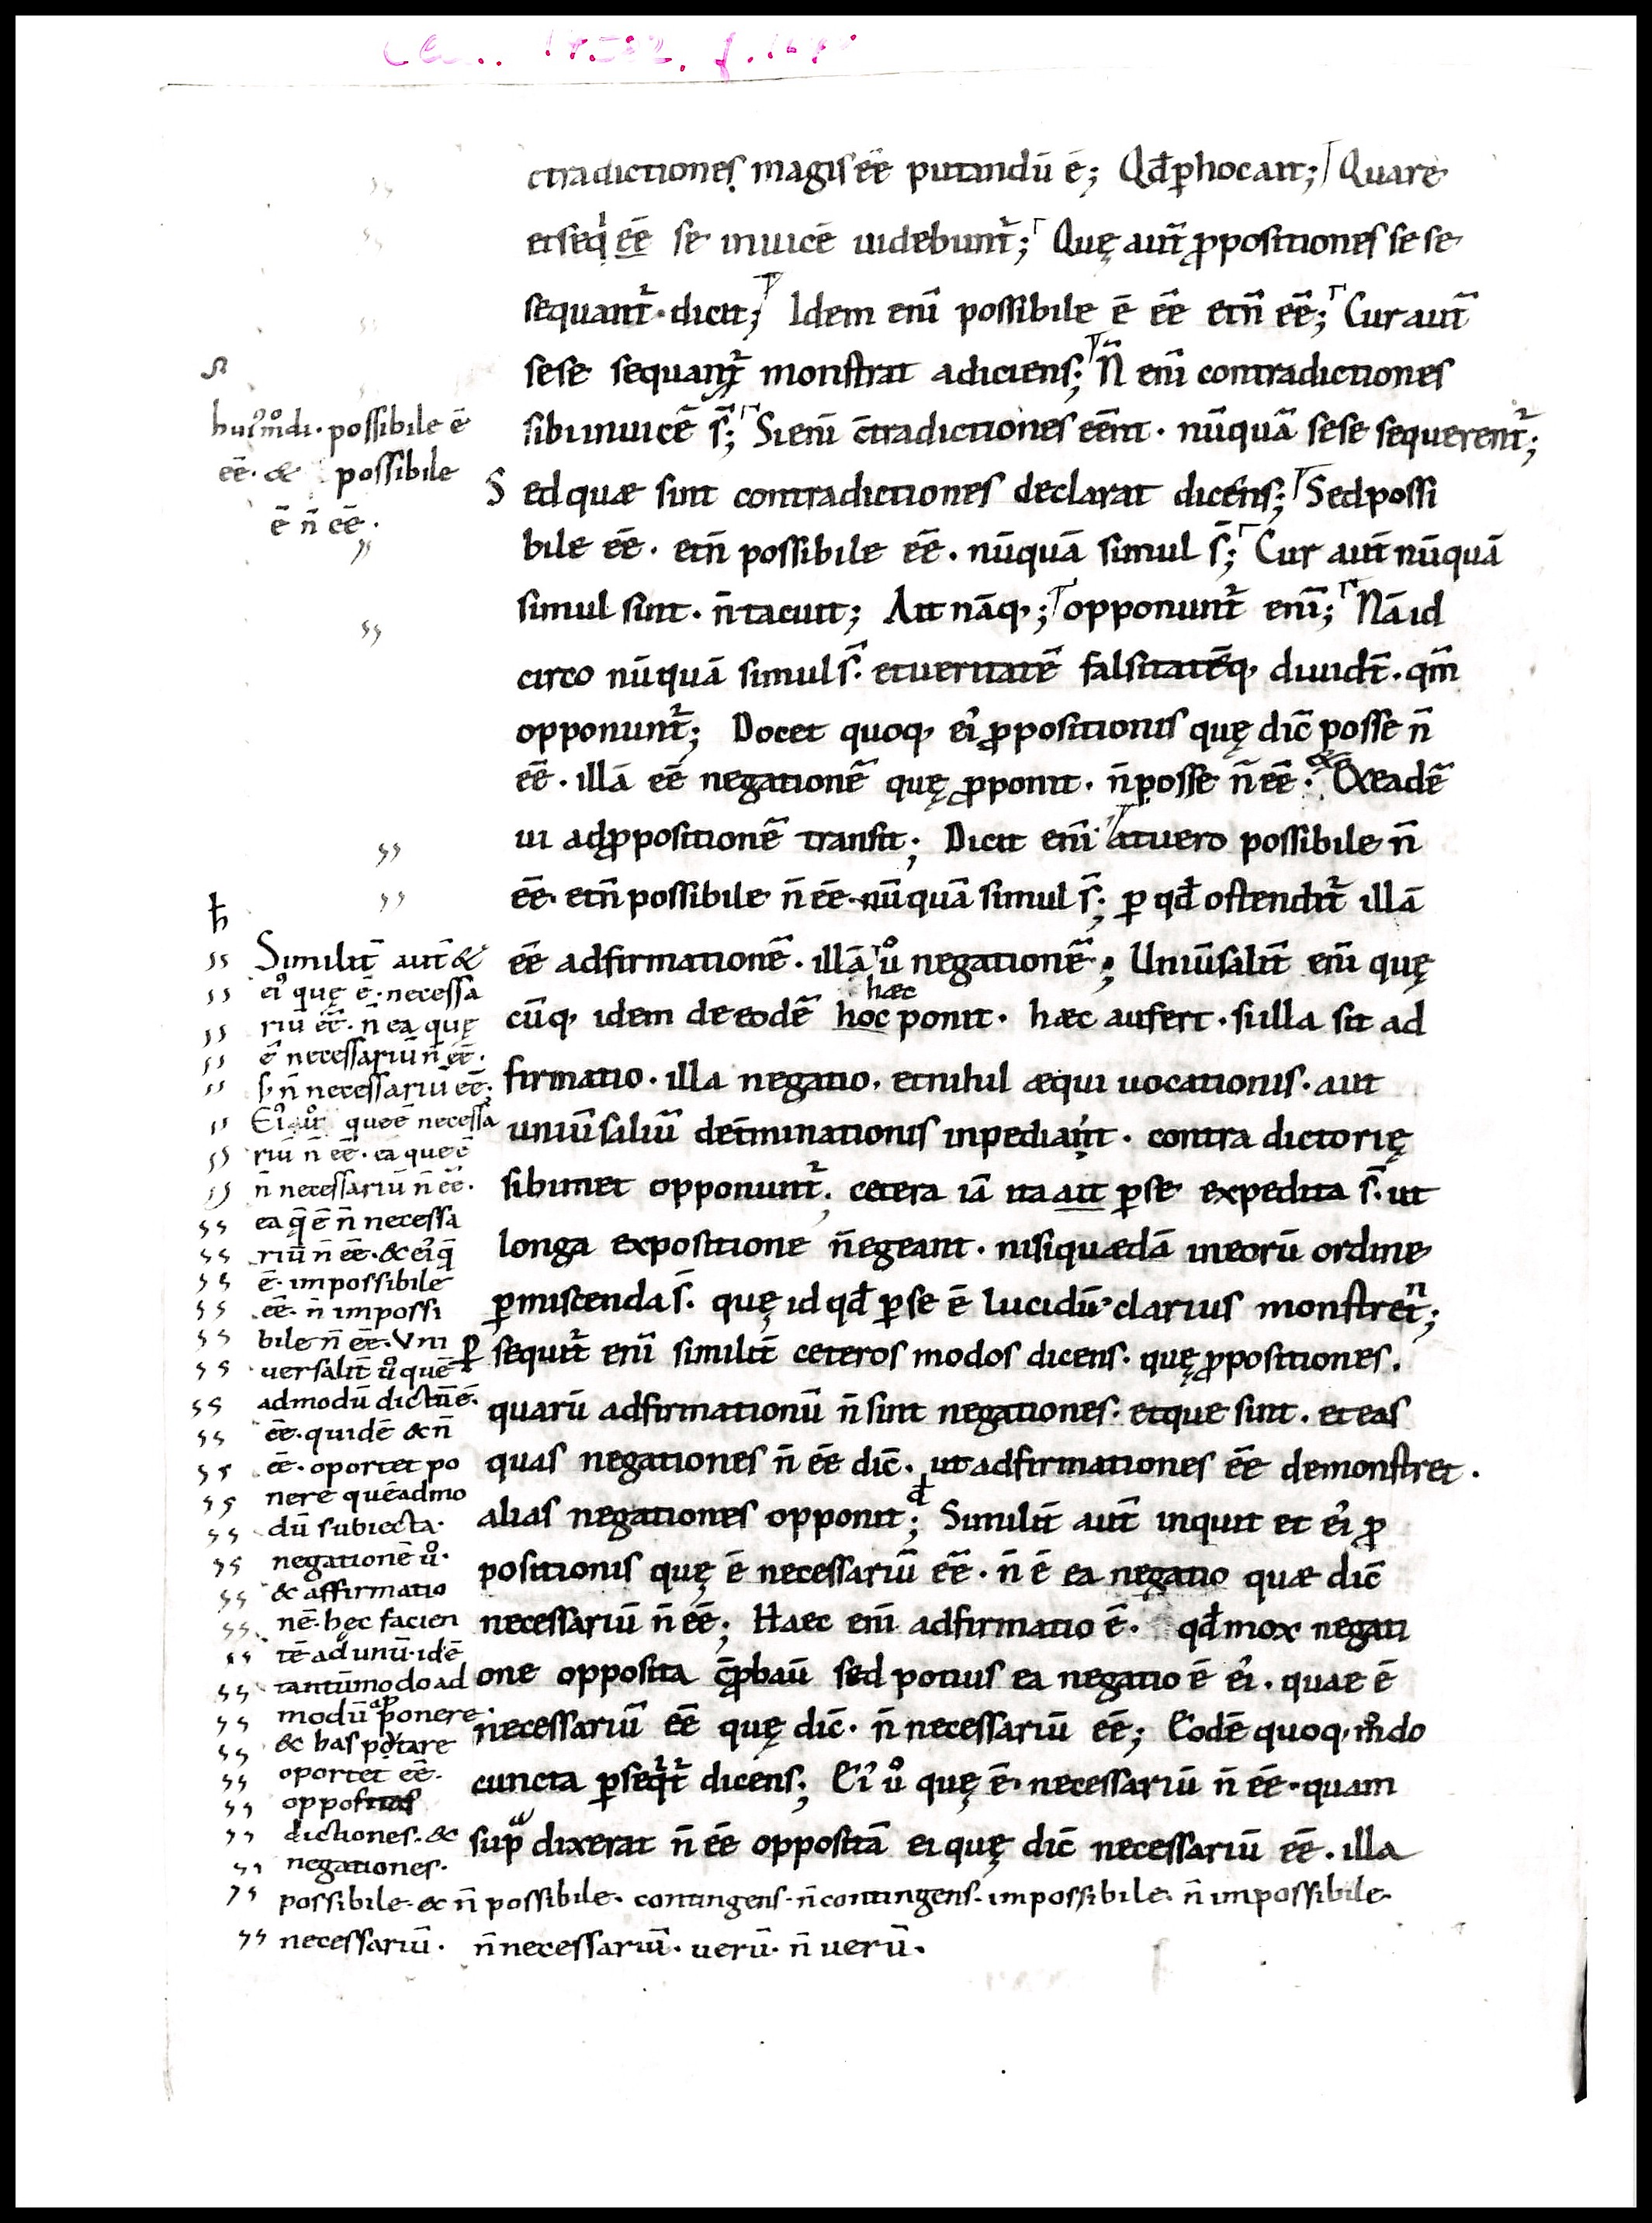 ctradictiones magis ee̅ putandu̅ e̅; Qd̅ ꝑ hoc ait; Quare
et seqi ee̅ se inuice̅ uidebunt᷑; Quę aut̅ ꝓpositiones se se
sequant᷑· dicit; Idem eni̅ possibile e̅ ee̅ et n̅ ee̅; Cur aut̅
sese sequant᷑ monstrat adiciens; N̅ eni̅ contradictiones
sibi inuice̅ s̅; Si eni̅ c̅tradictiones ee̅nt· nu̅qua̅ sese sequerent᷑;
Sed quæ sint contradictiones declarat dicens; Sed possi
bile ee̅· et n̅ possibile ee̅· nu̅qua̅ simul s̅; Cur aut̅ nu̅qua̅
simul sint· n̅ tacuit; Ait na̅q,; opponunt᷑ eni̅; Na̅ id
circo nu̅qua̅ simul s̅· et ueritate̅ falsitate̅q, diuidt̅· qm̅
opponunt᷑; Docet quoq, ei' ꝓpositionis quę dic̅ posse n̅
ee̅· illa̅ ee̅ negatione̅ quę ꝓponit· n̅ posse n̅ ee̅· Ex eade̅
ui ad ꝓpositione̅ transit; Dicit eni̅ at uero possibile n̅
ee̅· et n̅ possibile n̅ ee̅· nu̅qua̅ simul s̅; ꝑ qd̅ ostendit᷑ illa̅
ee̅ adfirmatione̅· illa̅ uͦ negatione̅; Uniu̅salit̅ eni̅ quę
cu̅q, idem de eode̅ hoc ponit· hæc aufert· si illa sit ad
hæc
firmatio· illa negatio, et nihil æqui uocationis· aut
uniu̅saliu̅ det̅minationis inpediant· contra dictorię
sibimet opponunt᷑; cetera ia̅ ita ait ꝑ se expedita s̅· ut
longa expositione n̅ egeant· nisi quæda̅ in eoru̅ ordine
ꝑmiscenda s̅· quę id qd̅ ꝑ se e̅ lucidu̅· clarius monstret̅;
ꝑsequit᷑ eni̅ similit̅ ceteros modos dicens· quę ꝓpositiones.
quaru̅ adfirmationu̅ n̅ sint negationes· et que sint· et eas
quas negationes n̅ ee̅ dic̅· ut adfirmationes ee̅ demonstret·
alias negationes opponit; Similit̅ aut̅ inquit et ei' ꝓ
positionis quę e̅ necessariu̅ ee̅· n̅ e̅ ea negatio quæ dic̅
necessariu̅ n̅ ee̅; Haec eni̅ adfirmatio e̅· qd̅ mox negati
one opposita c̅ꝓbau̅ sed potius ea negatio e̅ ei'· quae e̅
necessariu̅ ee̅ quę dic̅· n̅ necessariu̅ ee̅; Eode̅ quoq, mͦdo
cuncta ꝑseqt᷑ dicens; Ei' uͦ quę e̅· necessariu̅ n̅ ee̅· quam
sup dixerat n̅ ee̅ opposita̅ ei quę dic̅ necessariu̅ ee̅· illa
hui'mͦdi· possibile e̅
ee̅· & possibile
e̅ n̅ ee̅·
Similit̅ aut̅ &
ei' quę e̅· necessa
riu̅ ee̅· n̅ ea quę
e̅ necessariu̅ n̅ ee̅·
s· n̅ necessariu̅ ee̅;
Ei' uͦ que e̅ necessa
riu̅ n̅ ee̅· ea que e̅
n̅ necessariu̅ n̅ ee̅·
ea q̅ e̅ n̅ necessa
riu̅ n̅ ee̅· & ei' q̅
e̅· impossibile
ee̅· n̅ impossi
bile n̅ ee̅· Vni
uersalit̅ uͦ que̅
admodu̅ dictu̅ e̅·
ee̅· quide̅ & n̅
ee̅· oportet po
nere que̅admo
du̅ subiecta·
negatione̅ uͦ·
& affirmatio
ne̅· hęc facien
te̅ ad unu̅· ide̅
tantu̅modo ad
modu̅ aponere·
& has putare
oportet ee̅·
oppositas
dictiones· &
negationes·
possibile· & n̅ possibile· contingens· n̅ contingens· impossibile· n̅ impossibile·
necessariu̅· n̅ necessariu̅· ueru̅· n̅ ueru̅·